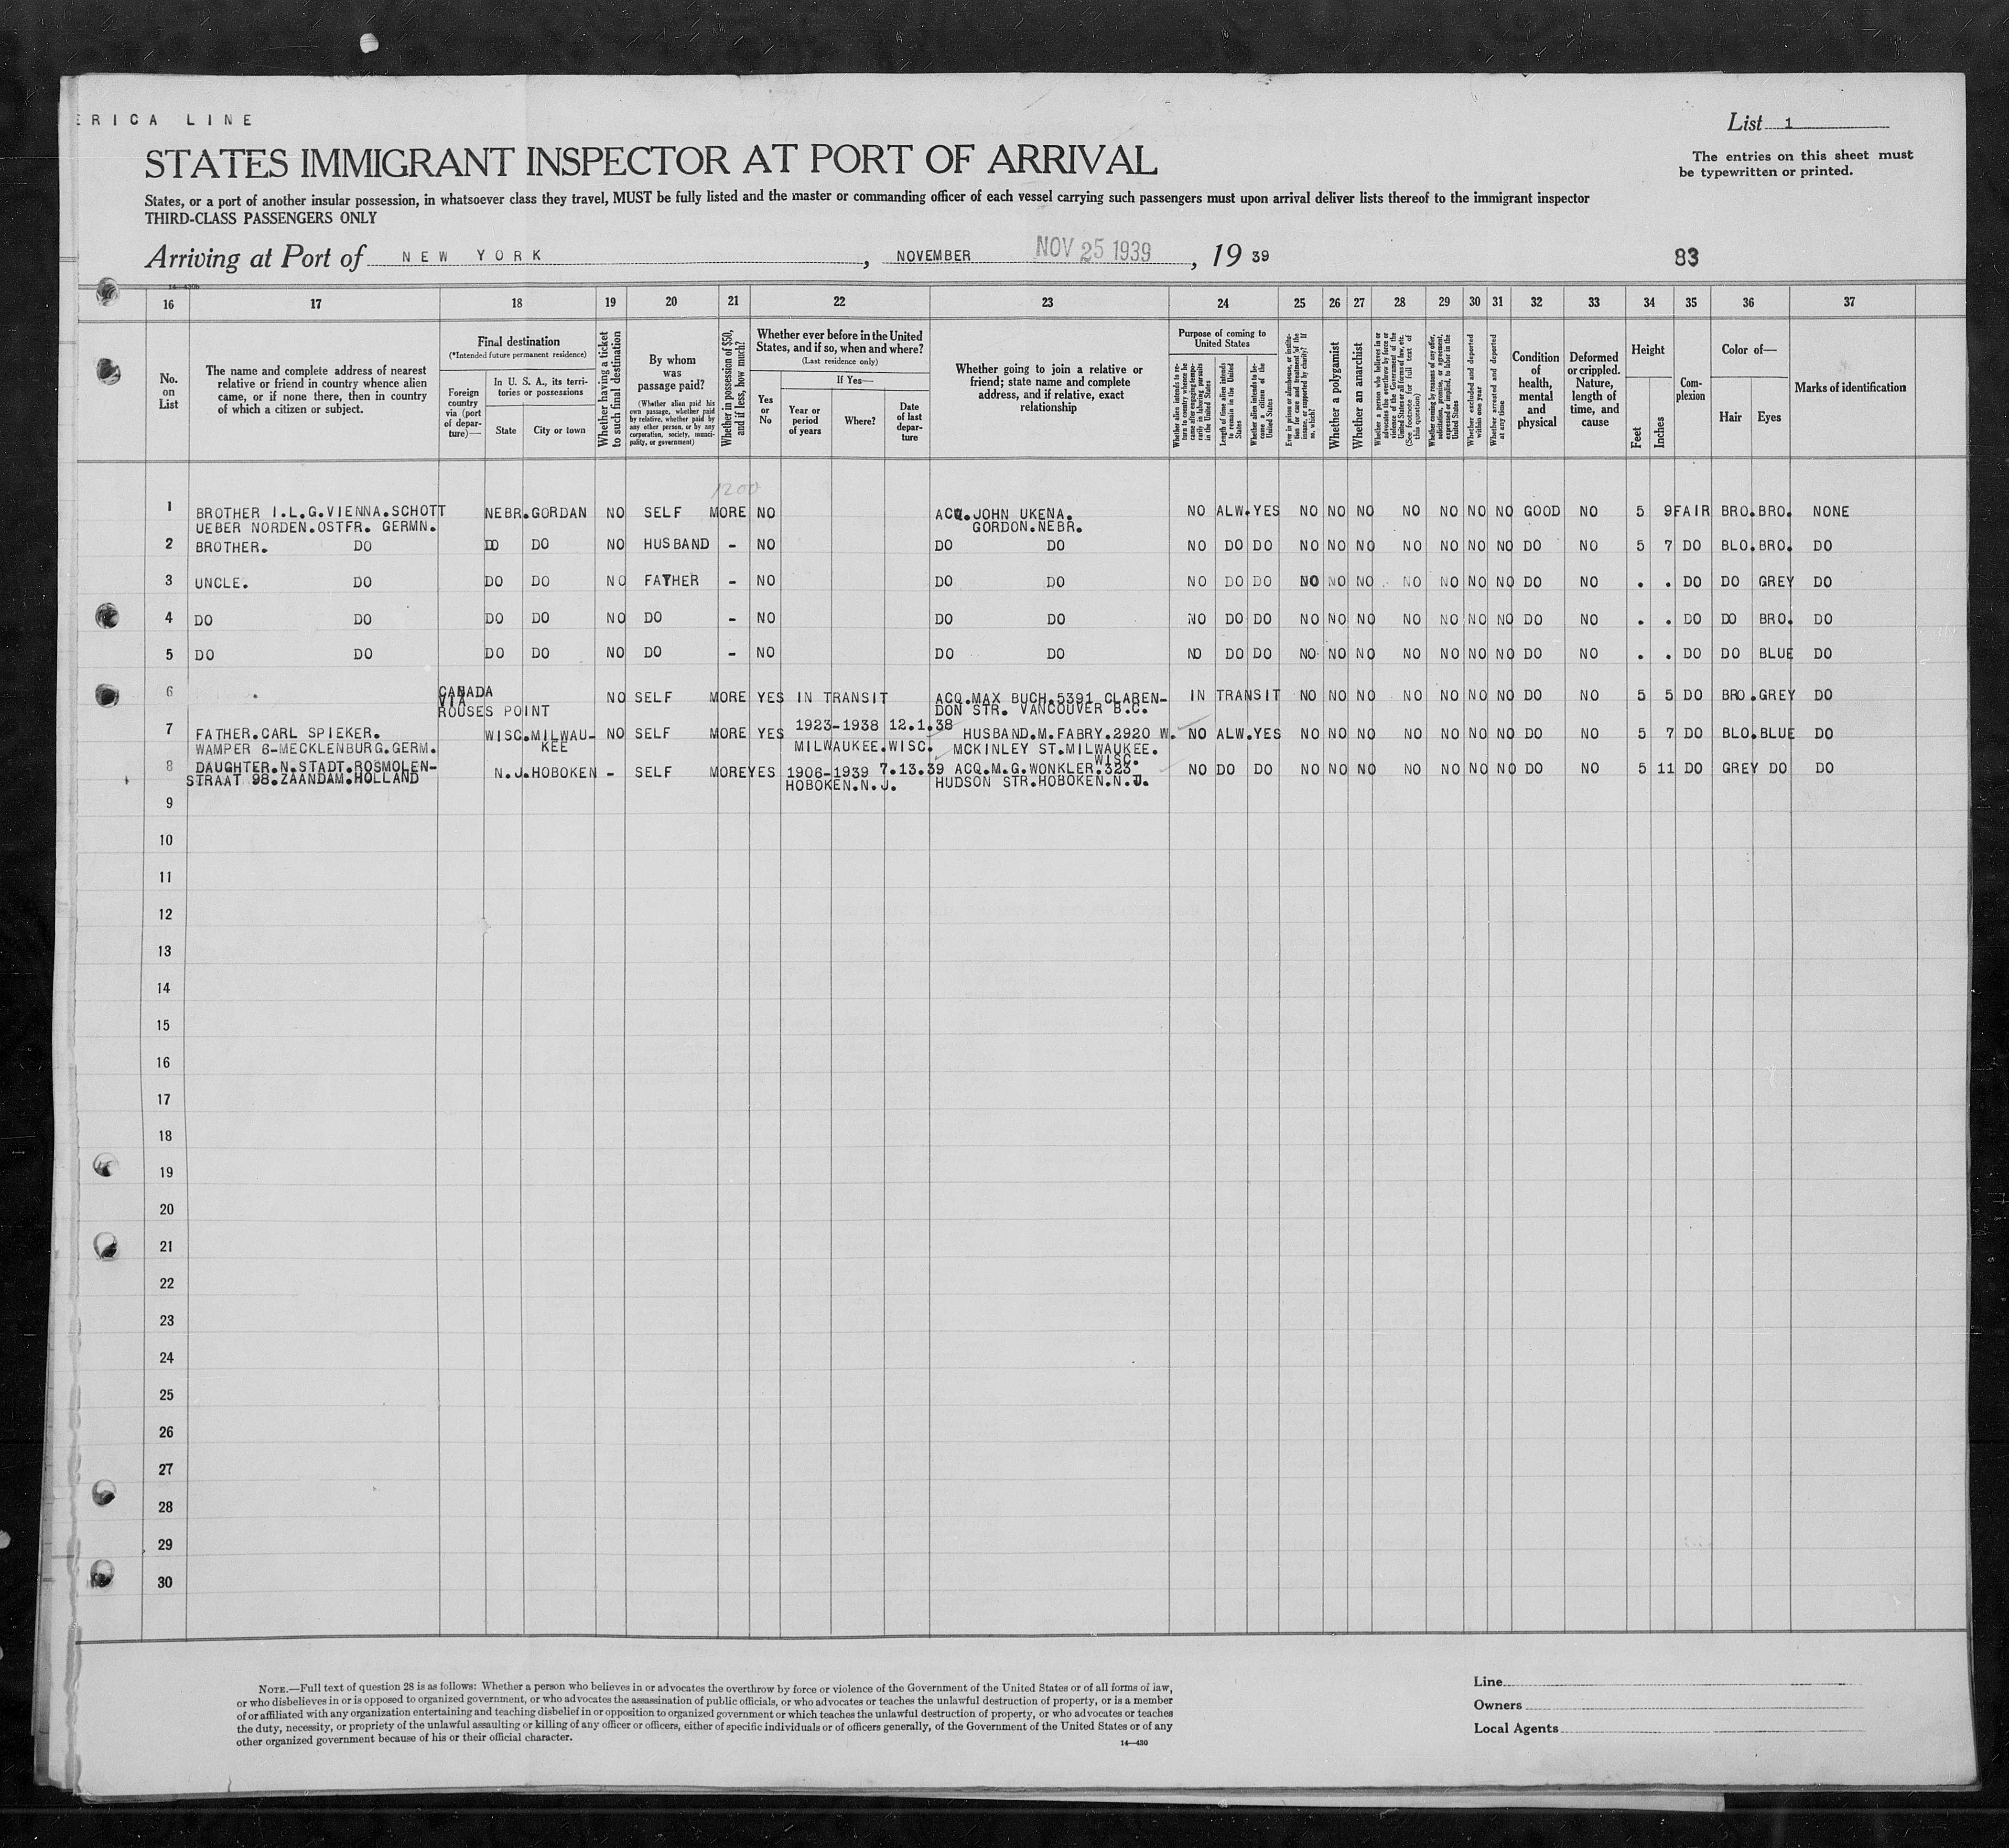 ERICA LINE
List 1
STATES IMMIGRANT INSPECTOR AT PORT OF ARRIVAL
The entries on this sheet must
be typewritten or printed.
States, or a port of another insular possession, in whatsoever class they travel, MUST be fully listed and the master or commanding officer of each vessel carrying such passengers must upon arrival deliver lists thereof to the immigrant inspector
THIRD-CLASS PASSENGERS ONLY
Arriving at Port of NEW YORK, NOVEMBER NOV 25 1939, 19 39
83
16 17 18 19 20 21 22 23 24 25 26 27 28 29 30 31 32 33 34 35 36 37
No.
on
List
The name and complete address of nearest
relative or friend in country whence alien
came, or if none there, then in country
of which a citizen or subject.
Final destination
(*Intended future permanent residence)
Foreign
country
via (port
of depar-
ture)—
In U. S. A., its terri-
tories or possessions
State
City or town
Whether having a ticket
to such final destination
By whom
was
passage paid?
(Whether alien paid his
own passage, whether paid
by relative, whether paid by
any other person, or by any
corporation, society, munici-
pality, or government)
Whether in possession of $50,
and if less, how much?
Whether ever before in the United
States, and if so, when and where?
(Last residence only)
Yes
or
No
If Yes—
Year or
period
of years
Where?
Date
of last
depar-
ture
Whether going to join a relative or
friend; state name and complete
address, and if relative, exact
relationship
Purpose of coming to
United States
Length of time alien intends
to remain in the United
States
Whether alien intends to be-
come a citizen of the
United States
Whether a polygamist
Whether an anarchist
Whether excluded and deported
within one year
Whether arrested and deported
at any time
Condition
of
health,
mental
and
physical
Deformed
or crippled.
Nature,
length of
time, and
cause
Height
Feet
Inches
Com-
plexion
Color of—
Hair
Eyes
Marks of identification
1200
1 BROTHER I.L.G.VIENNA.SCHOTT NEBR.GORDAN NO SELF MORE NO ACQ.JOHN UKENA. NO ALW.YES NO NO NO NO NO NO NO GOOD NO 5 9 FAIR BRO.BRO. NONE
UEBER NORDEN.OSTFR. GERMN. GORDON.NEBR.
2 BROTHER. DO DO DO NO HUSBAND - NO DO DO NO DO DO NO NO NO NO NO NO NO DO NO 5 7 DO BLO.BRO. DO
3 UNCLE. DO DO DO NO FATHER - NO DO DO NO DO DO NO NO NO NO NO NO NO DO NO . . DO DO GREY DO
4 DO DO DO DO NO DO - NO DO DO NO DO DO NO NO NO NO NO NO NO DO NO . . DO DO BRO. DO
5 DO DO DO DO NO DO - NO DO DO NO DO DO NO NO NO NO NO NO NO DO NO . . DO DO BLUE DO
6 CANADA NO SELF MORE YES IN TRANSIT ACQ.MAX BUCH.5391 CLAREN- IN TRANSIT NO NO NO NO NO NO NO DO NO 5 5 DO BRO.GREY DO
VIA
ROUSES POINT DON STR. VANCOUVER B.C.
7 FATHER.CARL SPIEKER. WISC.MILWAU- NO SELF MORE YES 1923-1938 12.1.38 HUSBAND.M.FABRY.2920 W. NO ALW.YES NO NO NO NO NO NO NO DO NO 5 7 DO BLO.BLUE DO
WAMPER 6-MECKLENBURG.GERM. KEE MILWAUKEE.WISC. MCKINLEY ST.MILWAUKEE.
WISC.
8 DAUGHTER.N.STADT.ROSMOLEN- N.J.HOBOKEN - SELF MORE YES 1906-1939 7.13.39 ACQ.M.G.WONKLER.323 NO DO DO NO NO NO NO NO NO NO DO NO 5 11 DO GREY DO DO
STRAAT 98.ZAANDAM.HOLLAND HOBOKEN.N.J. HUDSON STR.HOBOKEN.N.J.
9
10
11
12
13
14
15
16
17
18
19
20
21
22
23
24
25
26
27
28
29
30
NOTE.—Full text of question 28 is as follows: Whether a person who believes in or advocates the overthrow by force or violence of the Government of the United States or of all forms of law,
or who disbelieves in or is opposed to organized government, or who advocates the assassination of public officials, or who advocates or teaches the unlawful destruction of property, or is a member
of or affiliated with any organization entertaining and teaching disbelief in or opposition to organized government or which teaches the unlawful destruction of property, or who advocates or teaches
the duty, necessity, or propriety of the unlawful assaulting or killing of any officer or officers, either of specific individuals or of officers generally, of the Government of the United States or of any
other organized government because of his or their official character.
14—430
Line
Owners
Local Agents